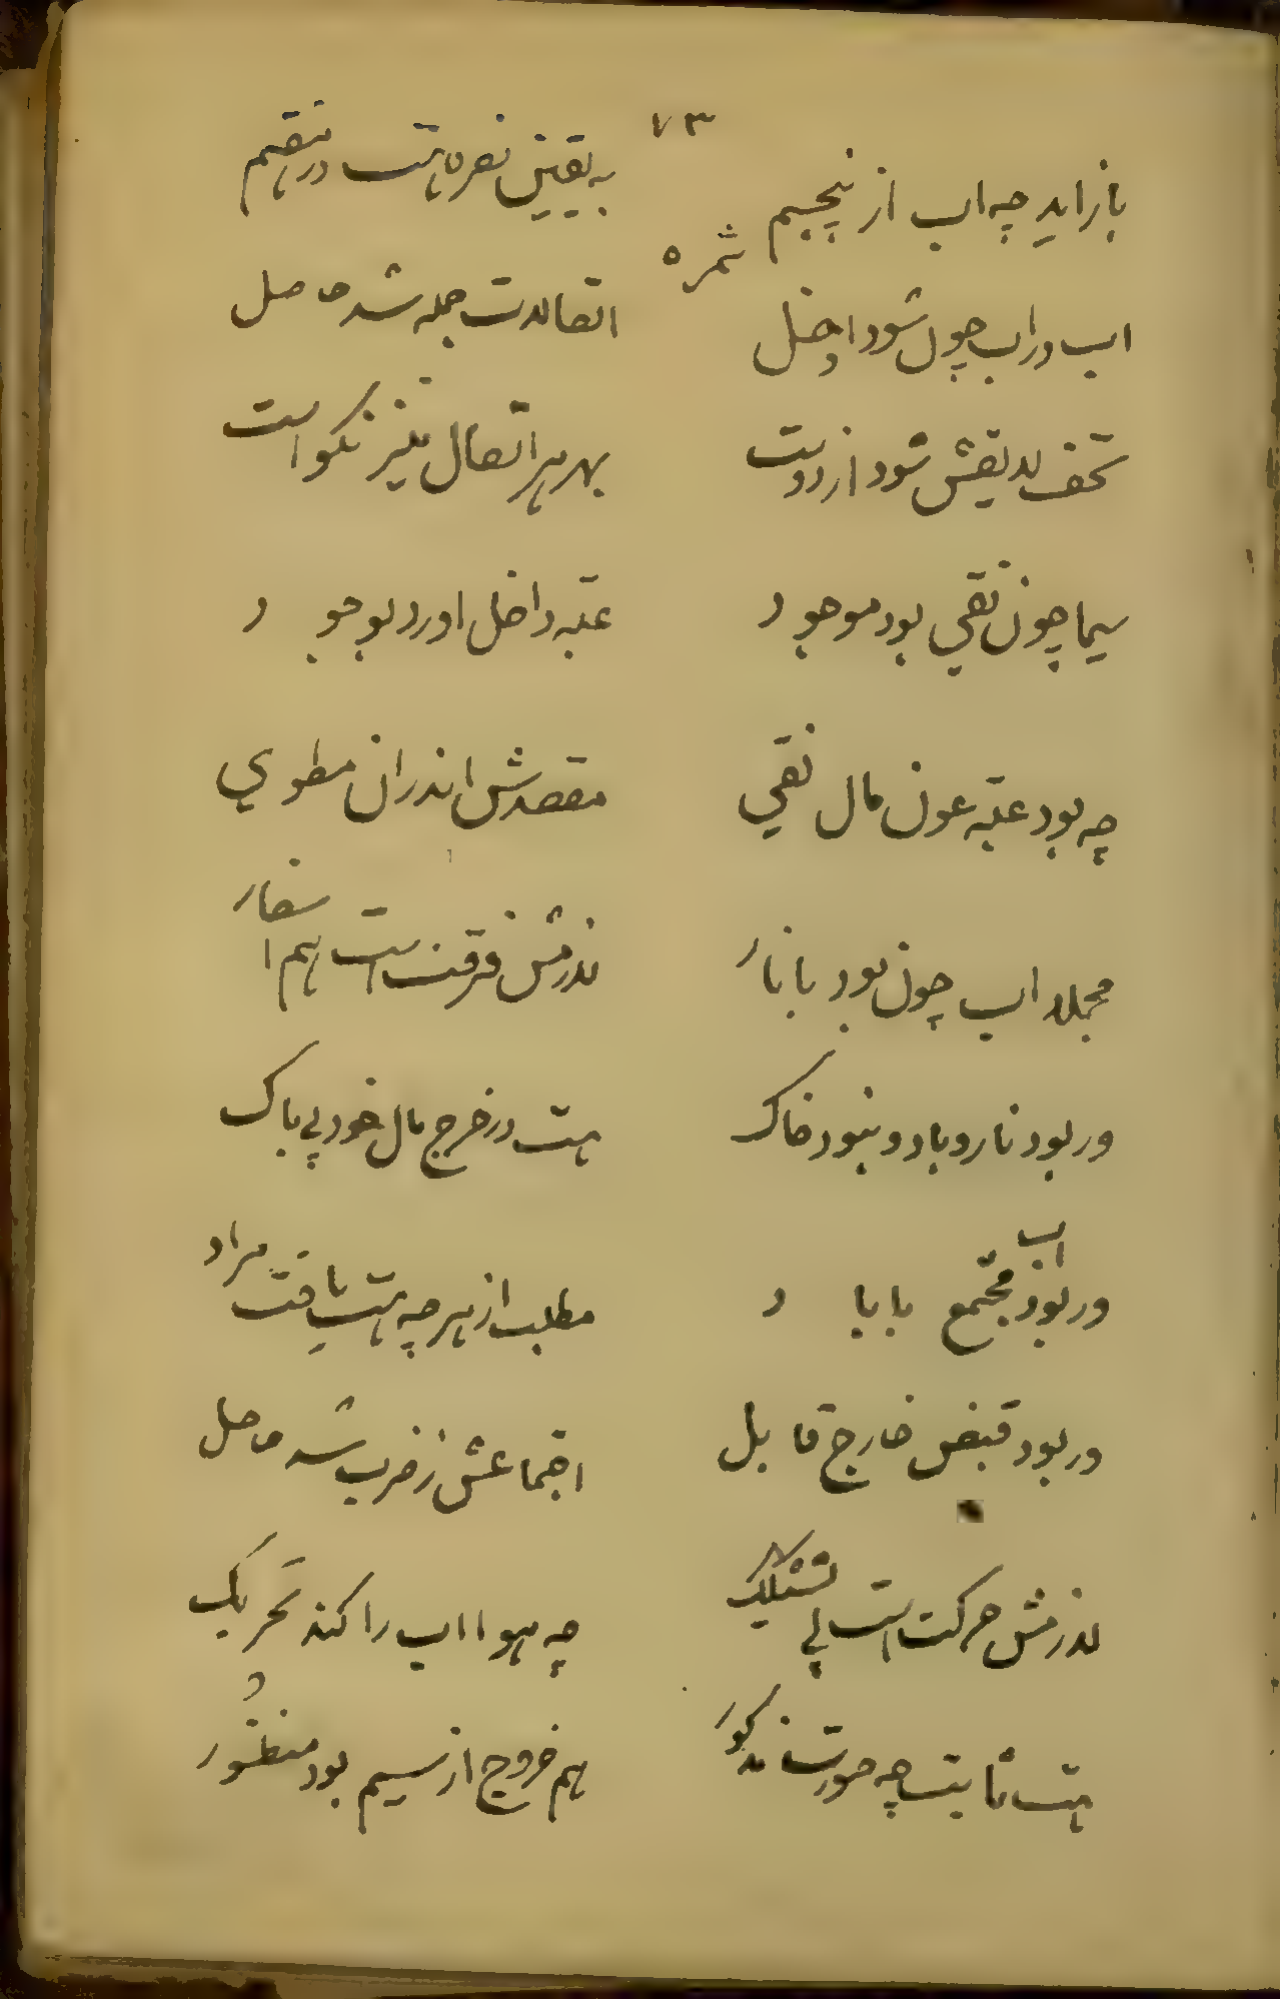 ٧٣
باز اید چه اب از پنجیم
به یقین نفره هست در هقتم
ثمره
اب در اب چون شود داخل
اتصالات جمله شد حاصل
شود از دوست
بهر هر اتصال نیز نکو است
سیما چون نقی بود موجود
عتبه داخل اورد بوجود
چه بود عتبه عون مال نقی
مقصدش اندران مطوی
مجملا اب چون بود با نار
لازمش فرقت است هم اسفار
ور بود نار و باد و نبود خاک
هست در خرج مال خود بی باک
ور بود اب مجتمع با باد
مطلب از هر چه هست یافت مراد
ور بود قبض خارج قابل
اجتماعش ز ضرب شد حاصل
لازمش حرکت است بی تشکیک
چه هوا اب را کند تحریک
هست ثابت چه صورت مذکور
هم خروج از سیم بود منظور